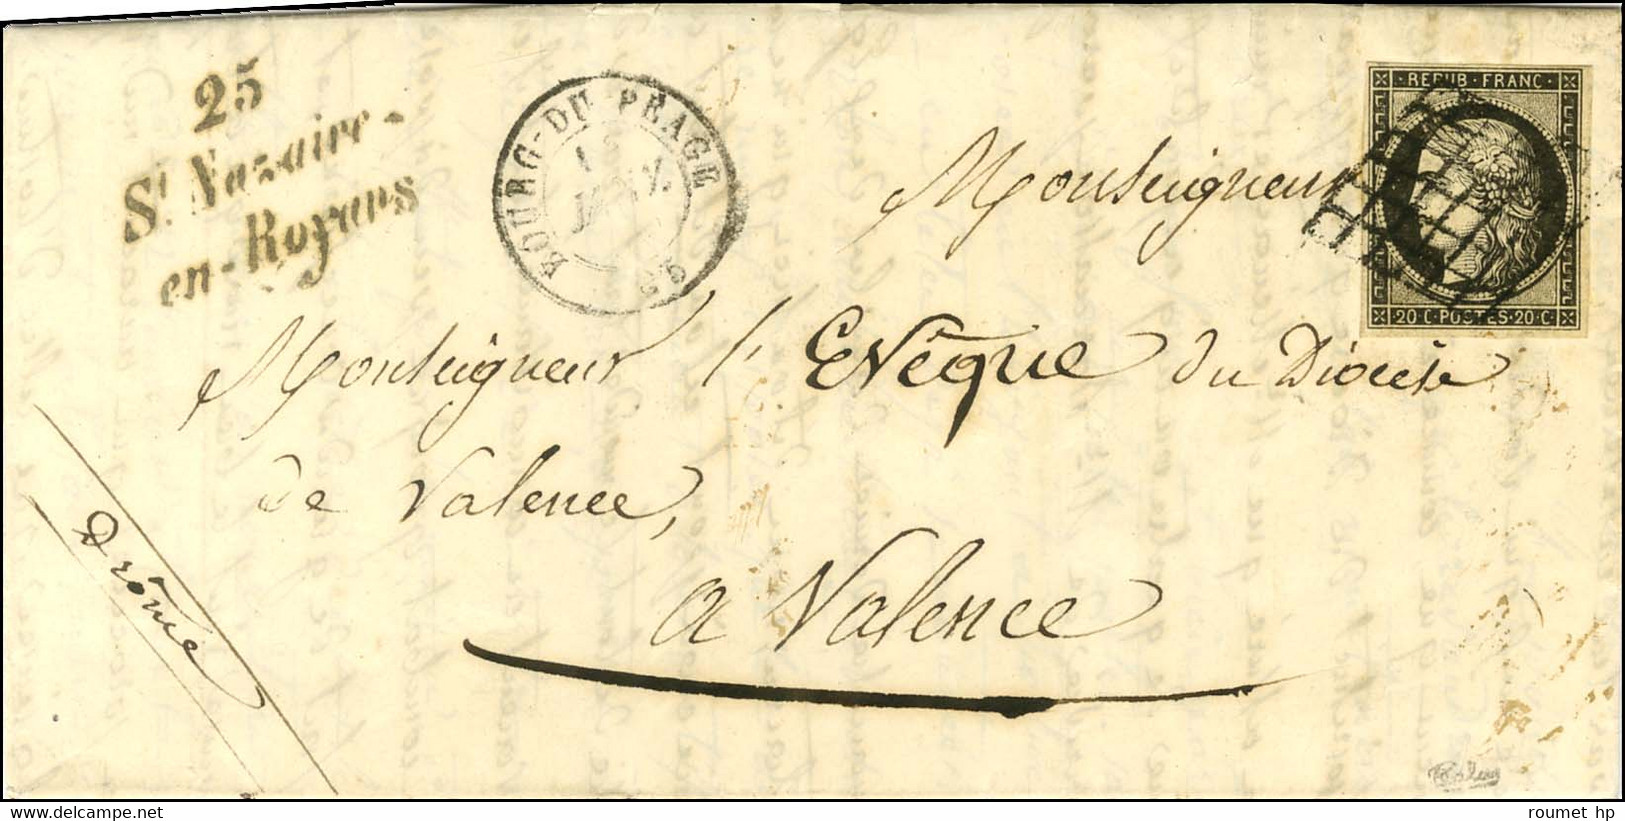 25
St. Nazaire-
en-Royans
BOURG-DU PÉAGE
REPUB·FRANC·
20·C·POSTES·20·C·
Monseigneur
Monseigneur l'Evêque du Diocèse
de Valence,
a Valence
Drôme
roumet hp